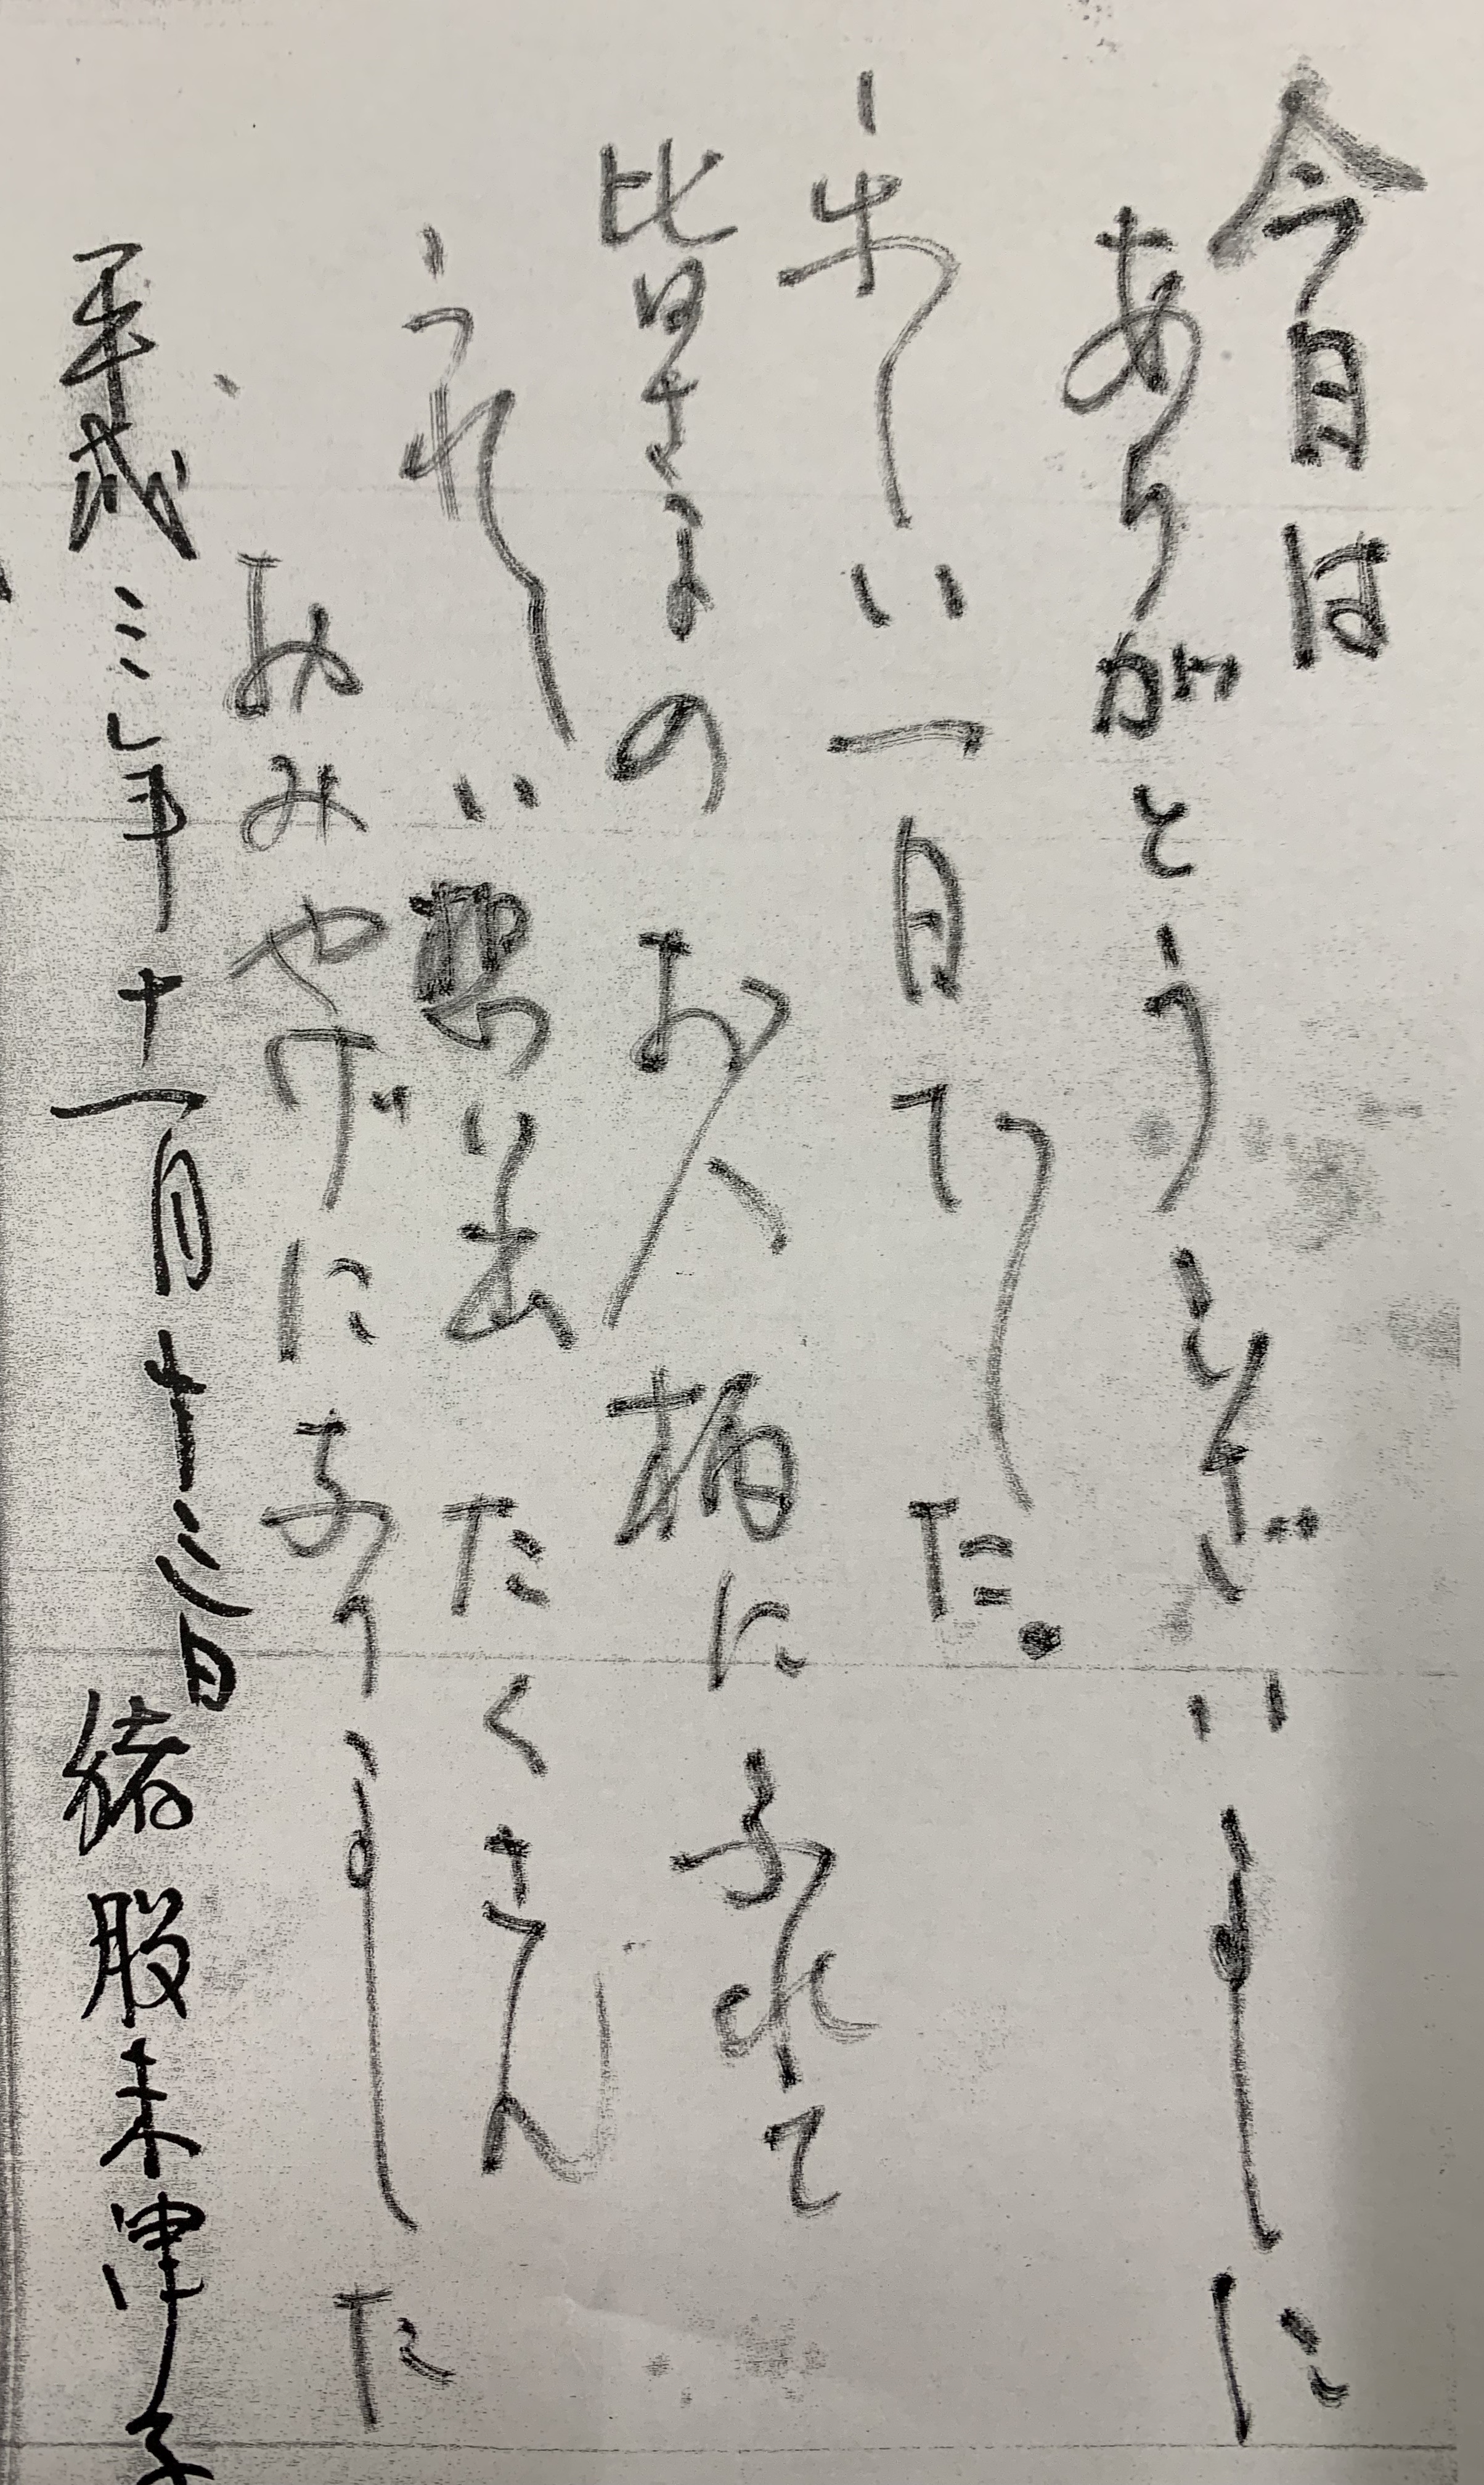 今日は
ありがとうございました
楽しい一日でした。
皆さまのお人柄にふれて
うれしい想い出たくさん
おみやげになりました
平成三年十一月十三日
猪股未津子